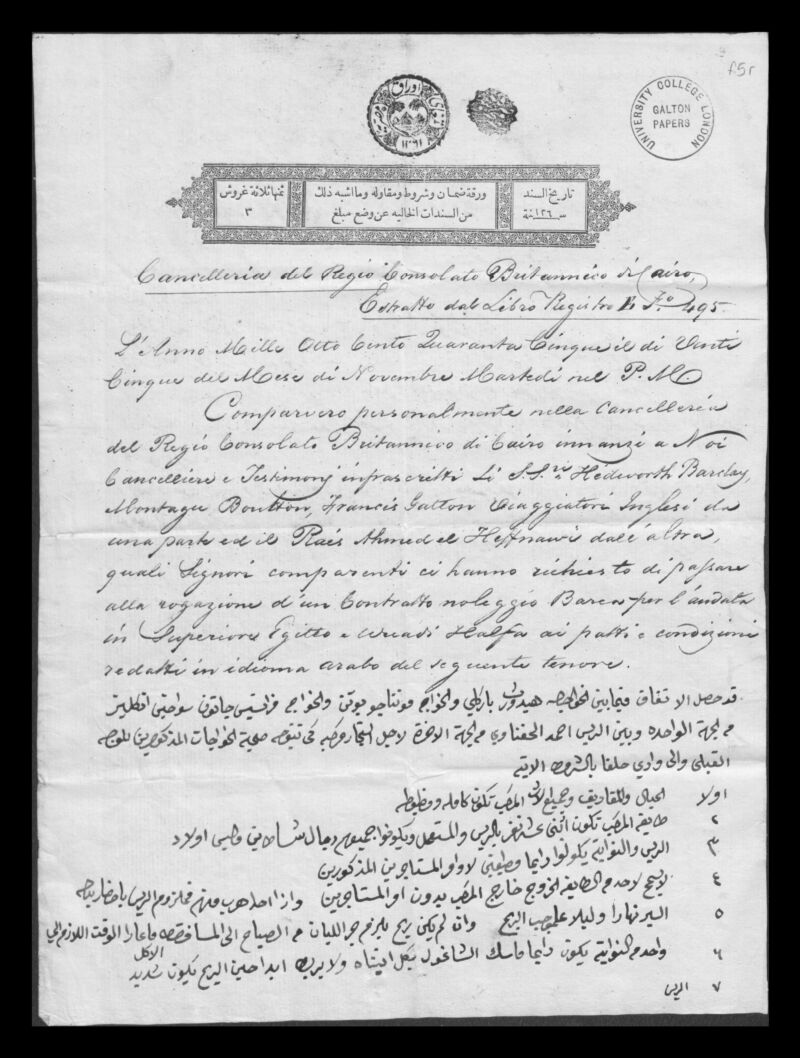 f5r
UNIVERSITY COLLEGE LONDON
GALTON
PAPERS
اوراق
١٢٦١
تاريخ السند
سـ١٢٦ـنة
ورقة ضمان وشروط ومقاوله وما اشبه ذلك
من السندات الخاليه عن وضع مبلغ
ثمنها ثلاثة غروش
٣
Cancelleria del Regio Consolato Britannico di Cairo,
Estratto dal Libro Registro 495.
L'Anno Mille Otto Cento Quaranta Cinque il di Venti
Cinque del Mese di Novembre Martedi nel P.M.
Comparvero personalmente nella Cancelleria
del Regio Consolato Britannico di Cairo innanzi a Noi
Cancelliere e Testimonj infrascritti Li S.S.ri Hedworth Barclay,
Montagu Boulton, Francis Galton Viaggiatori Inglesi da
una parte ed il Raés Ahmed el Heffnawi dall'altra,
quali Signori comparenti ci hanno richiesto di passare
alla rogazione d'un Contratto noleggio Barca per l'andata
in Superiore Egitto e Wuadi Halfa ai patti e condizioni
redatti in idioma arabo del seguente tenore.
قد حصل الاتفاق فيما بين الخواجه هيدورث باركلي والخواج مونتاجو بوتن والخواج فرانسيس جالتون سواحين انكليز
من الجهة الواحده وبين الريس احمد الحفناوي من الجهة الاخرة لاجل استجار مركبه كي تتوجه صحبة الخواجات المذكورين للوجه
القبلي والى وادي حلفا بالشروط الاتيه
اولا الحبال والمقاديف وجميع الات المركب تكون كامله ومظبوطه
٢ طايفة المركب تكون اثنى عشر نفر بالريس والمستعمل ويكونوا جميعهم رجال شاطرين وليس اولاد
٣ الريس والنواتيه يكونوا دايما مطيعين لاوامر المستاجرين المذكورين
٤ لا يسمح لاحد من الطايفه الخروج خارج المركب بدون امر المستاجرين واذا احد هرب منهم فملزوم الريس باحضار بدله
٥ السير نهارا وليلا على حسب الريح وان لم يكن ريح يلزم جر اللبان من الصباح الى المسا ما عدا الوقت اللازم الى
الاكل
٦ واحد من النواتيه يكون دايما ماسك الشاغول بكل انتباه ولا يربطه ابدا حين الريح يكون شديد
٧ الريس